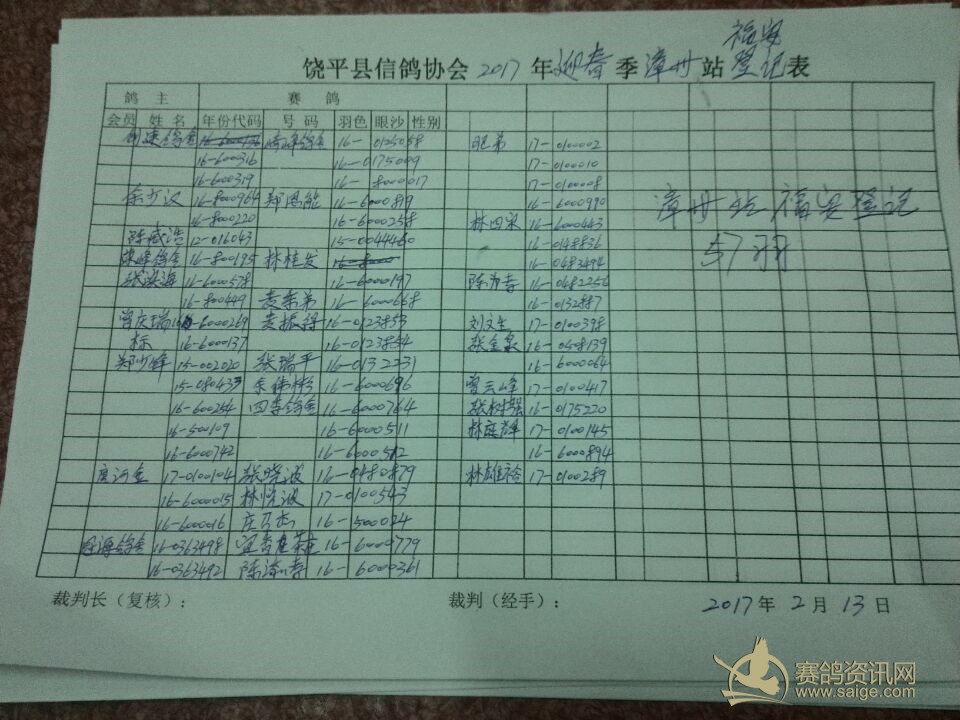 福安
饶平县信鸽协会 2017 年 迎春 季 漳州 站 登记 表
鸽 主 赛 鸽
会员 姓 名 年份代码 号 码 羽色 眼沙 性别
创速鸽舍 鸽舍 16-0125058 17-0100002
16-600316 16-0175009 17-0100010
16-600319 16-8000017 17-0100008
余少汉 16-800964 郑恩能 16-6000819 16-6000990
16-800220 16-6000258 林四泉 16-6000463
陈咸浩 12-016043 15-0044460 16-0148836
鸽舍 16-800195 林桂发 16-0483494
张洪海 16-600578 16-6000197 16-0482256
16-800449 16-6000668 16-0132887
曾庆瑞 16-6000269 16-0123853 刘文生 17-0100398
标 16-6000137 16-0123854 张金泉 16-0508139
郑少锋 15-002020 张瑞平 16-0132231 16-6000064
15-080433 16-6000696 曾云峰 17-0100417
16-600254 四季鸽舍 16-6000764 张树强 16-0175220
16-500109 16-6000511 17-0100145
16-6000742 16-6000512 16-6000894
17-0100104 张晓波 16-0480879 林雄裕 17-0100289
16-6000015 林悦波 17-0100543
16-6000016 16-500024
鸽舍 16-0363498 16-6000779
16-0363492 16-6000361
漳州站福安登记
57羽
裁判长（复核）： 裁判（经手）： 2017 年 2 月 13 日
赛鸽资讯网
www.saige.com